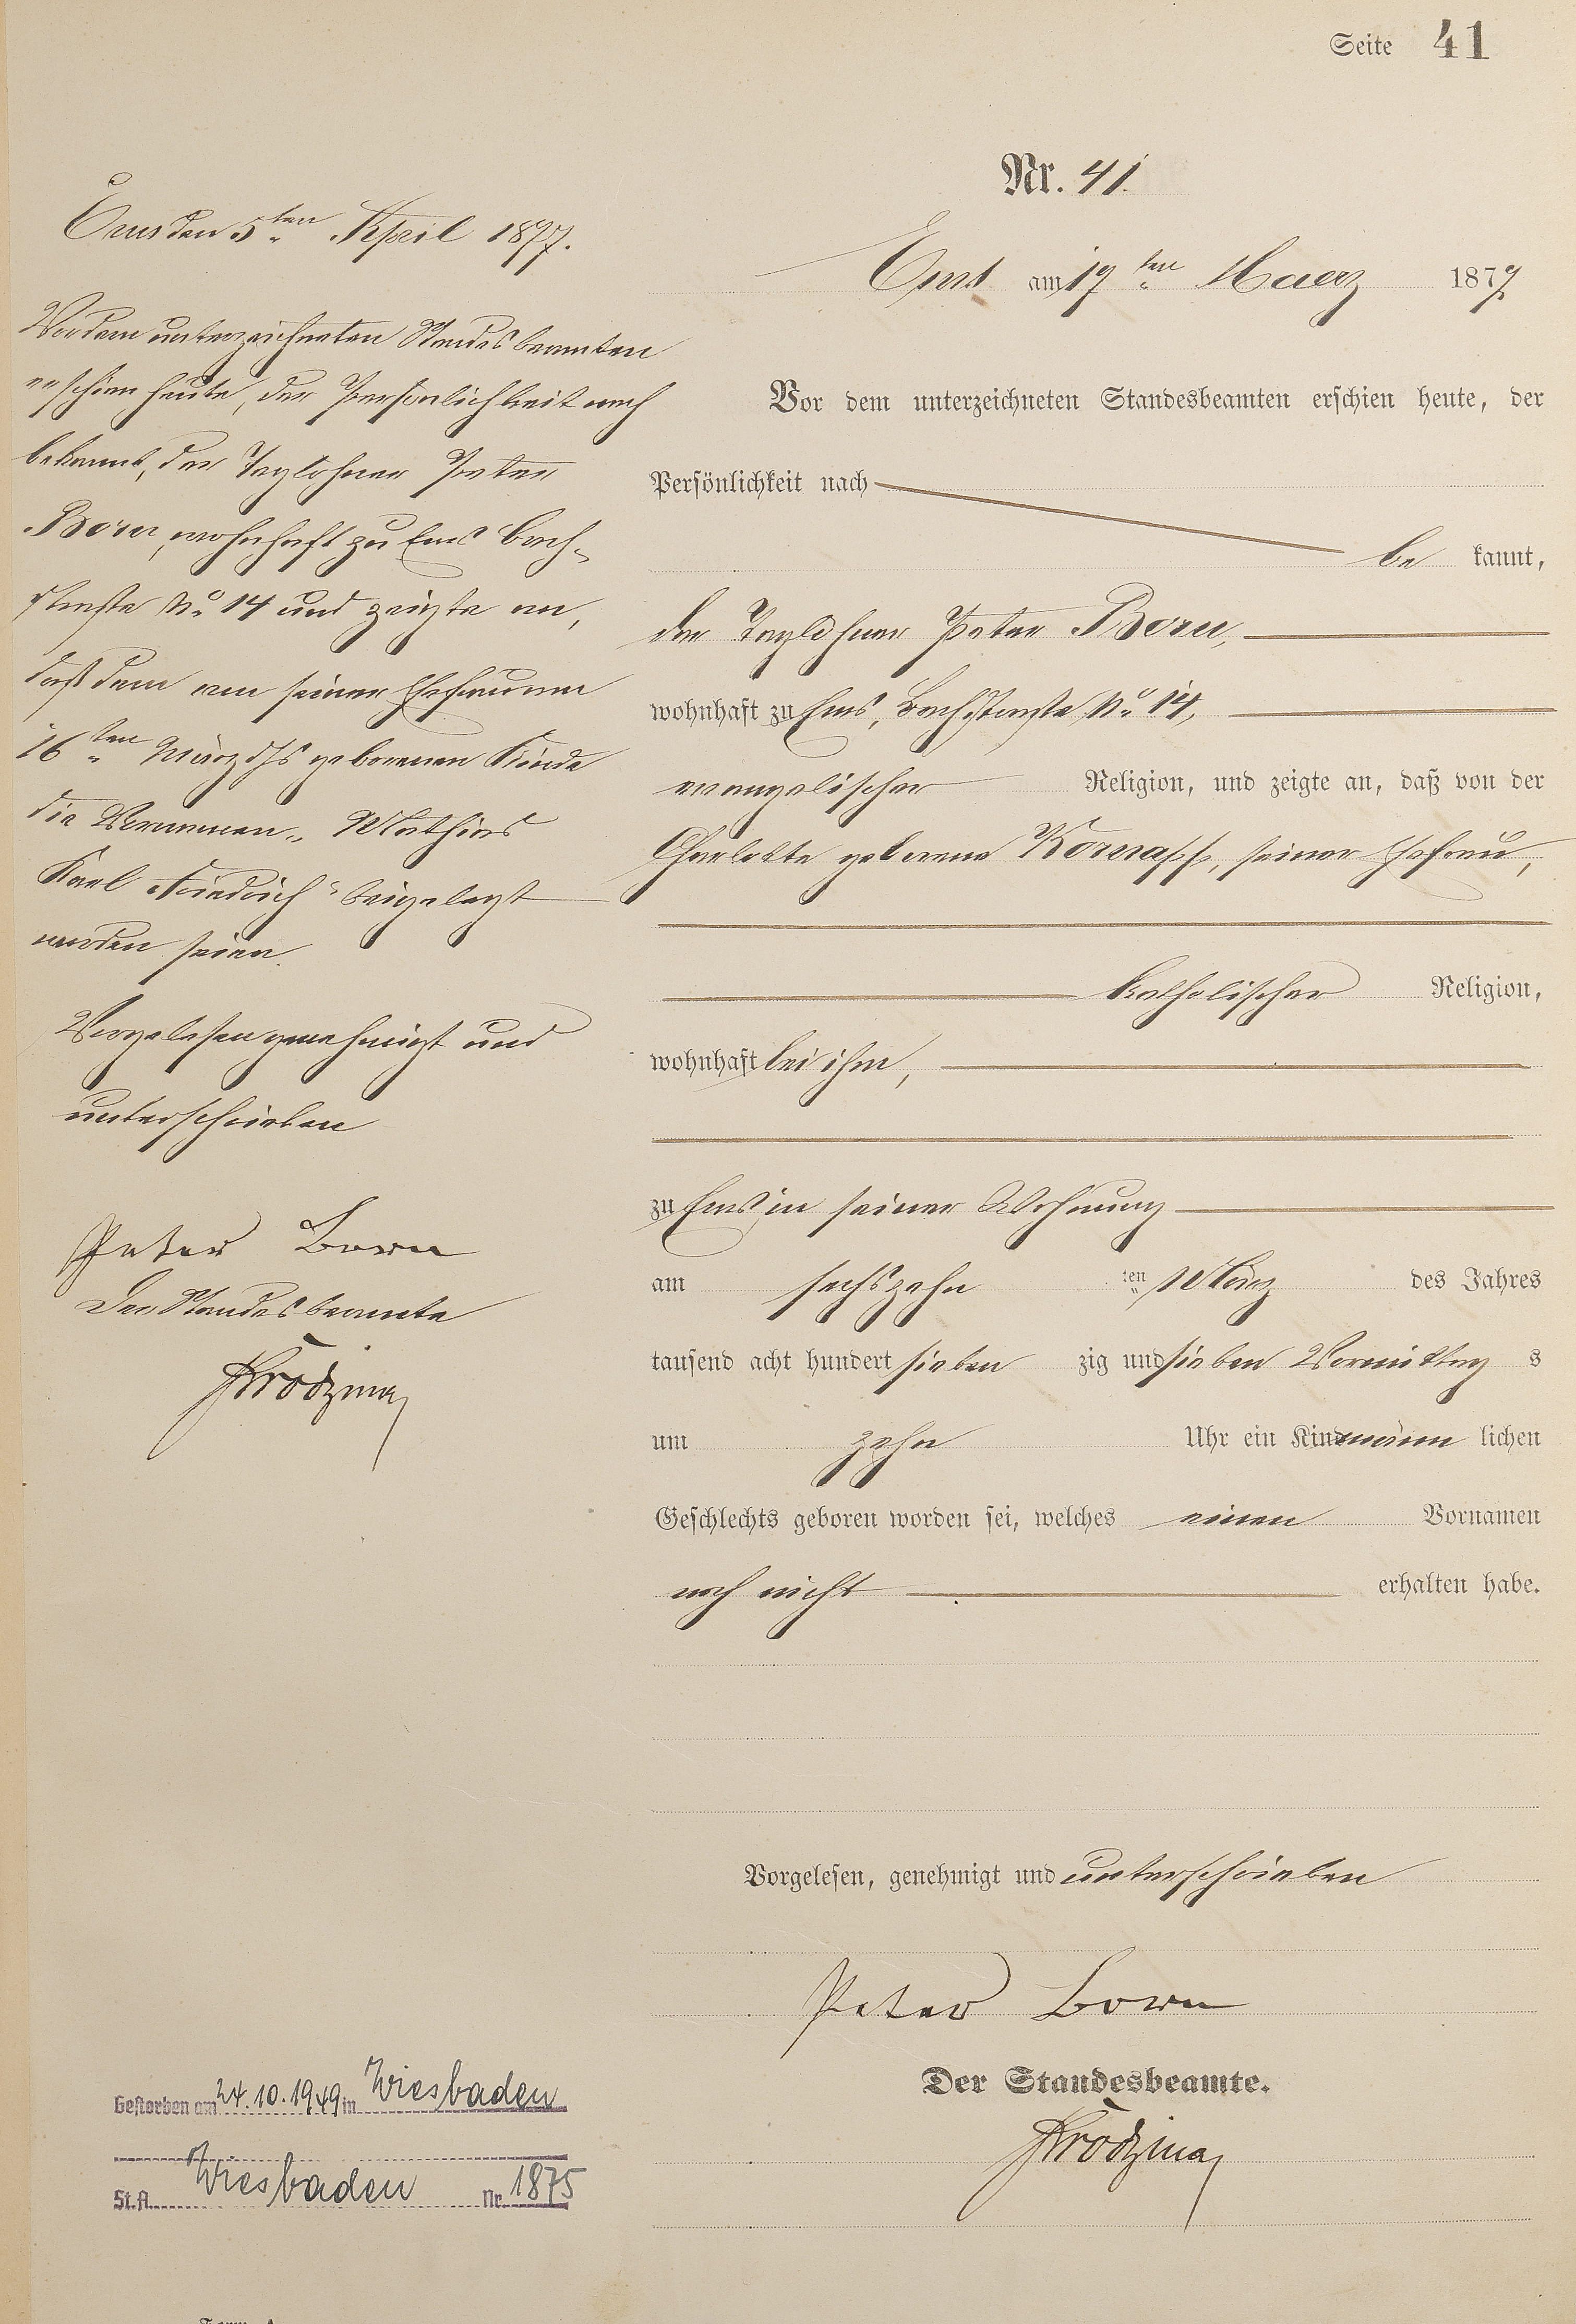 Seite 41
Nr. 41.
Ems am 17ten Maerz 1877
Vor dem unterzeichneten Standesbeamten erschien heute, der
Persönlichkeit nach
be kannt,
der Taglöhner Peter Born,
wohnhaft zu Ems, Bachstraße No. 14,
evangelischer Religion, und zeigte an, daß von der
Charlotte geborene seiner Ehefrau,
katholischer Religion,
wohnhaft bei ihm,
zu Ems in seiner Wohnung
am sechszehn ten März des Jahres
tausend acht hundert sieben zig und sieben Vormittag s
um zehn Uhr ein Kind männ lichen
Geschlechts geboren worden sei, welches einen Vornamen
noch nicht erhalten habe.
Vorgelesen, genehmigt und unterschrieben
Peter Born
Der Standesbeamte.
Ems den 5ten April 1877.
Vor dem unterzeichneten Standesbeamten
erschien heute, der Persönlichkeit nach
bekannt, der Taglöhner Peter
Born, wohnhaft zu Ems Bach-
straße No. 14 und zeigte an,
daß dem von seiner Ehefrau am
16ten März d/Js geborenen Kinde
die Vornamen „Mathias
Karl Friedrich“ beigelegt
worden seien.
Vorgelesen genehmigt und
unterschrieben
Peter Born
Der Standesbeamte
Gestorben am 24.10.1949 in Wiesbaden
St.A. Wiesbaden Nr. 1875